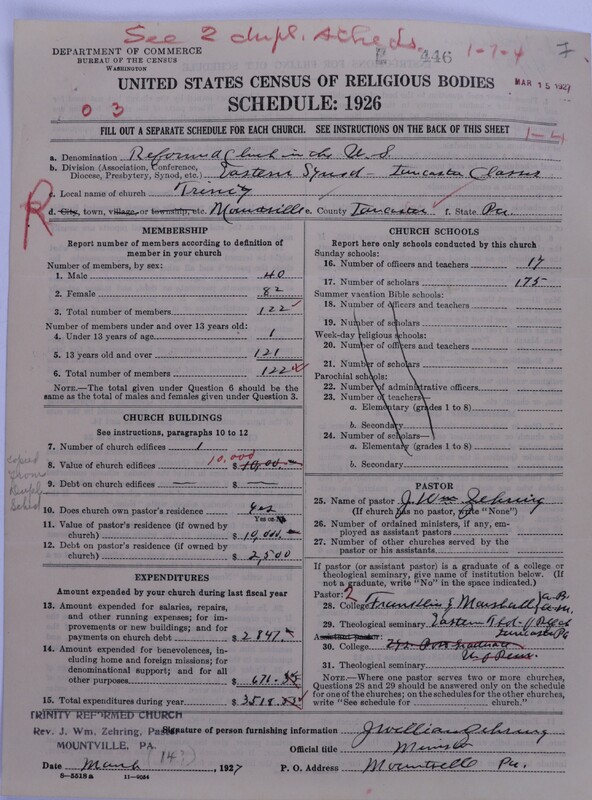 See 2 dupl. scheds.
DEPARTMENT OF COMMERCE
BUREAU OF THE CENSUS
WASHINGTON
446
1-7-4
7
MAR 15 1927
UNITED STATES CENSUS OF RELIGIOUS BODIES
SCHEDULE: 1926
0 3
FILL OUT A SEPARATE SCHEDULE FOR EACH CHURCH. SEE INSTRUCTIONS ON THE BACK OF THIS SHEET
1-4
a. Denomination Reformed Church in the U. S.
b. Division (Association, Conference, Diocese, Presbytery, Synod, etc.) Eastern Synod - Lancaster Classis
c. Local name of church Trinity
R
d. City, town, village, or township, etc. Mountville e. County Lancaster f. State Pa.
MEMBERSHIP
Report number of members according to definition of member in your church
Number of members, by sex:
1. Male 40
2. Female 82
3. Total number of members 122
Number of members under and over 13 years old:
4. Under 13 years of age 1
5. 13 years old and over 121
6. Total number of members 122
NOTE.—The total given under Question 6 should be the same as the total of males and females given under Question 3.
CHURCH BUILDINGS
See instructions, paragraphs 10 to 12
7. Number of church edifices 1
10,000
8. Value of church edifices $
copied from dupl. sched
9. Debt on church edifices — $ —
10. Does church own pastor's residence Yes
Yes or No
11. Value of pastor's residence (if owned by church) $ 10,000.
12. Debt on pastor's residence (if owned by church) $ 2,500
EXPENDITURES
Amount expended by your church during last fiscal year
13. Amount expended for salaries, repairs, and other running expenses; for improvements or new buildings; and for payments on church debt $ 2847.
14. Amount expended for benevolences, including home and foreign missions; for denominational support; and for all other purposes $ 671.
15. Total expenditures during year $ 3518.
CHURCH SCHOOLS
Report here only schools conducted by this church
Sunday schools:
16. Number of officers and teachers 17
17. Number of scholars 175
Summer vacation Bible schools:
18. Number of officers and teachers
19. Number of scholars
Week-day religious schools:
20. Number of officers and teachers
21. Number of scholars
Parochial schools:
22. Number of administrative officers
23. Number of teachers—
a. Elementary (grades 1 to 8)
b. Secondary
24. Number of scholars—
a. Elementary (grades 1 to 8)
b. Secondary
PASTOR
25. Name of pastor J. Wm. Zehring
(If church has no pastor, write "None")
26. Number of ordained ministers, if any, employed as assistant pastors
27. Number of other churches served by the pastor or his assistants
If pastor (or assistant pastor) is a graduate of a college or theological seminary, give name of institution below. (If not a graduate, write "No" in the space indicated.)
Pastor: 2
28. College Franklin & Marshall A.B. A.M.
29. Theological seminary Eastern Theol. Lancaster Pa
Assistant pastor:
30. College Post Graduate U of Penn.
31. Theological seminary
NOTE.—Where one pastor serves two or more churches, Questions 28 and 29 should be answered only on the schedule for one of the churches; on the schedules for the other churches, write "See schedule for church."
TRINITY REFORMED CHURCH
Rev. J. Wm. Zehring, Pastor
MOUNTVILLE, PA.
(14?)
Signature of person furnishing information J William Zehring
Official title Minister
Date March, 1927
P. O. Address Mountville Pa.
8-5518 a 11-9084